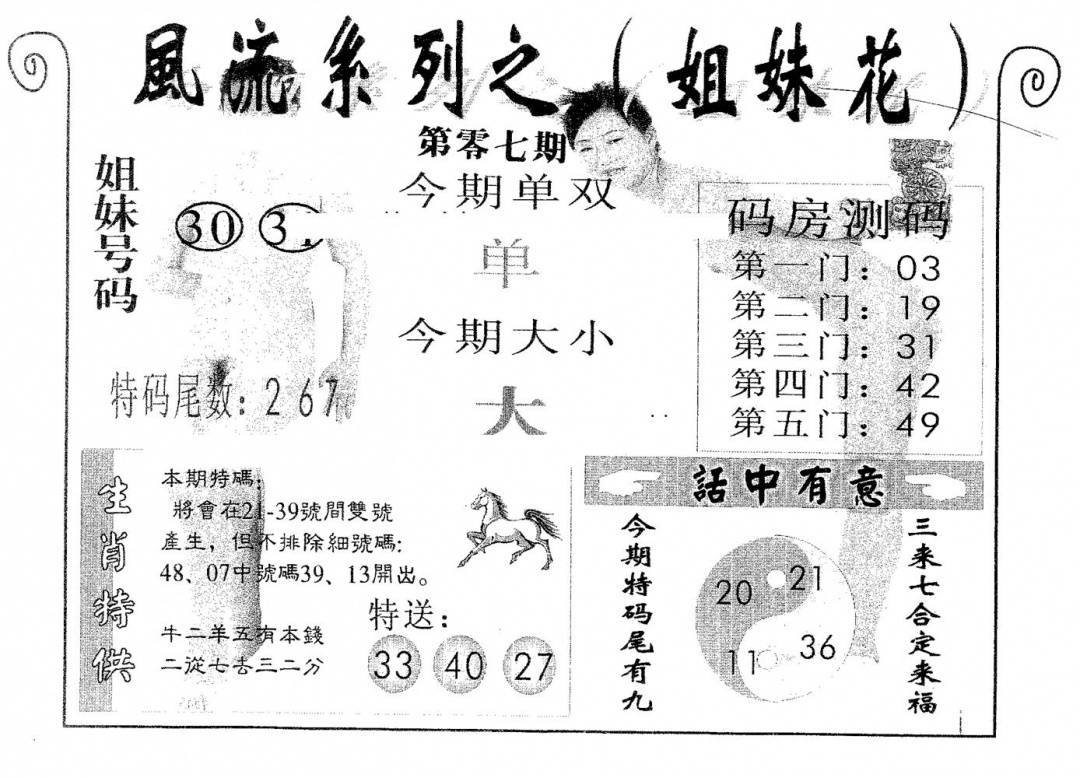 風流系列之(姐妹花)
第零七期
姐妹号码
30
今期单双
单
今期大小
大
特码尾数：2 6 7
码房测码
第一门：03
第二门：19
第三门：31
第四门：42
第五门：49
生肖特供
本期特碼：
將會在21-39號間雙號
產生，但不排除細號碼：
48、07中號碼39、13開出。
牛二羊五有本錢
二從七去三二分
特送：
33 40 27
話中有意
今期特码尾有九
20 21
11 36
三来七合定来福